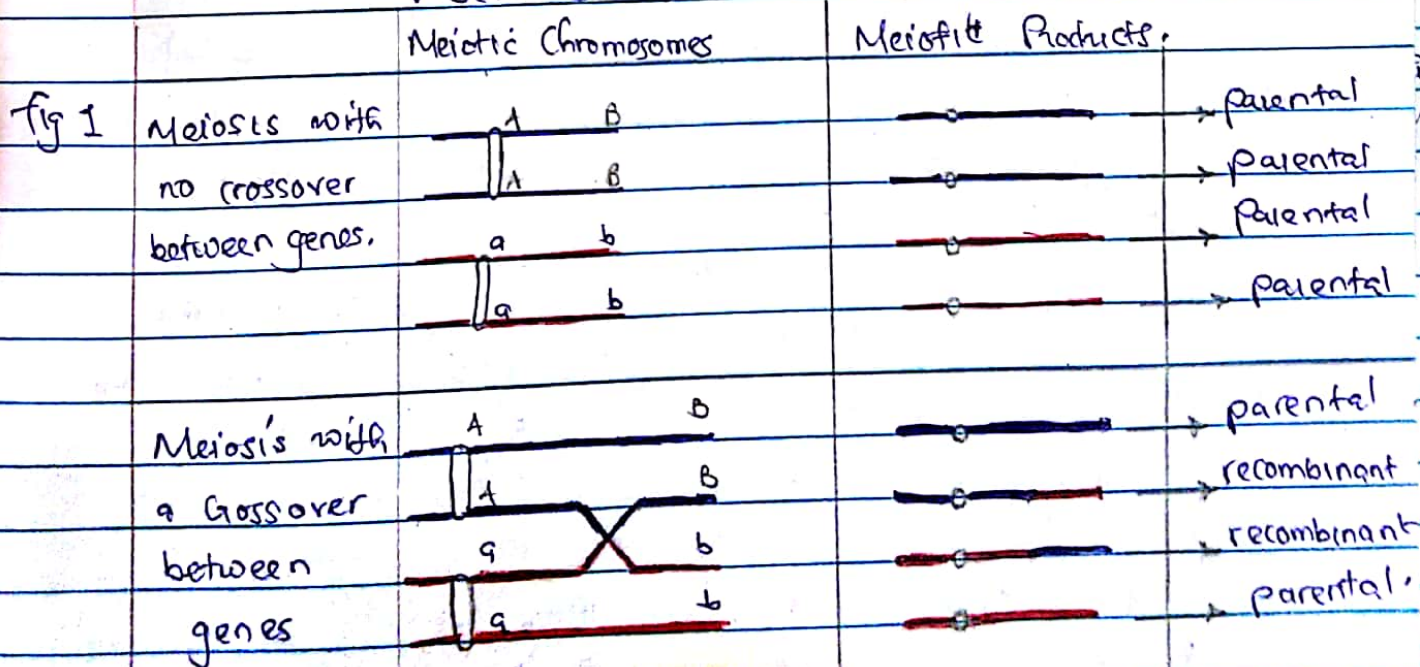 Meiotic Chromosomes
Meiofit Products.
fig 1
Meiosis with
no crossover
between genes.
A B
A B
a b
a b
parental
parental
Parental
parental
Meiosis with
a Crossover
between
genes
A B
A B
a b
a b
parental
recombinant
recombinant
parental.